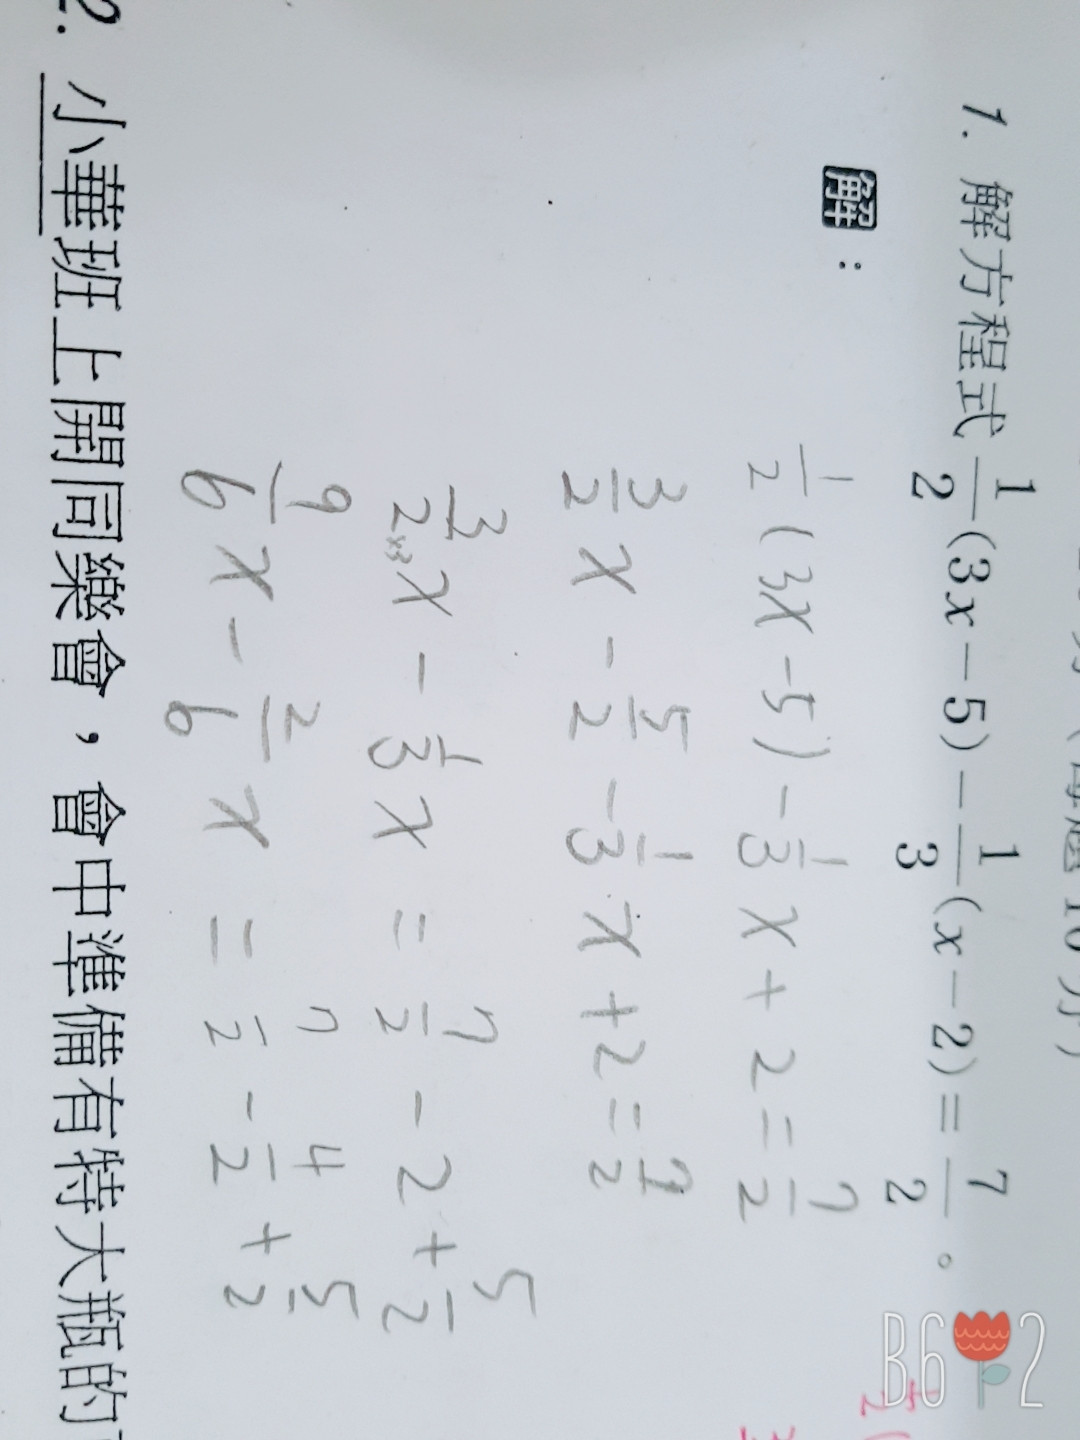 1. 解方程式 1/2(3x-5)-1/3(x-2)=7/2。
解：
1/2(3x-5)-1/3x+2=7/2
3/2x-5/2-1/3x+2=7/2
3/2×3x-1/3x=7/2-2+5/2
9/6x-2/6x=7/2-4/2+5/2
2. 小華班上開同樂會，會中準備有特大瓶的
B6 2